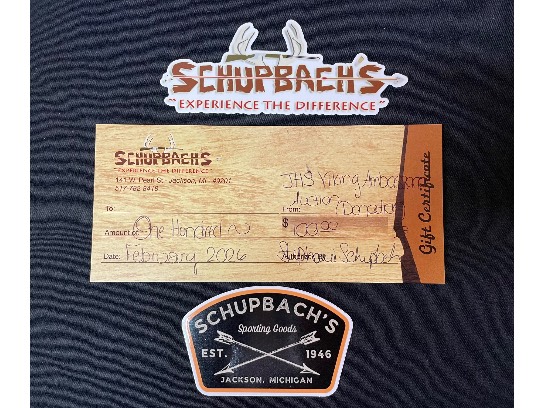 SCHUPBACH'S
"EXPERIENCE THE DIFFERENCE"
SCHUPBACH'S
"EXPERIENCE THE DIFFERENCE"
141 W. Pearl St. Jackson, MI 49201
517-782-8418
To:
From:
JHS Viking
Auction
Donation
Amount of: One Hundred
$ 100.00
Date: February 2026
Gift Certificate
SCHUPBACH'S
Sporting Goods
EST. 1946
JACKSON, MICHIGAN